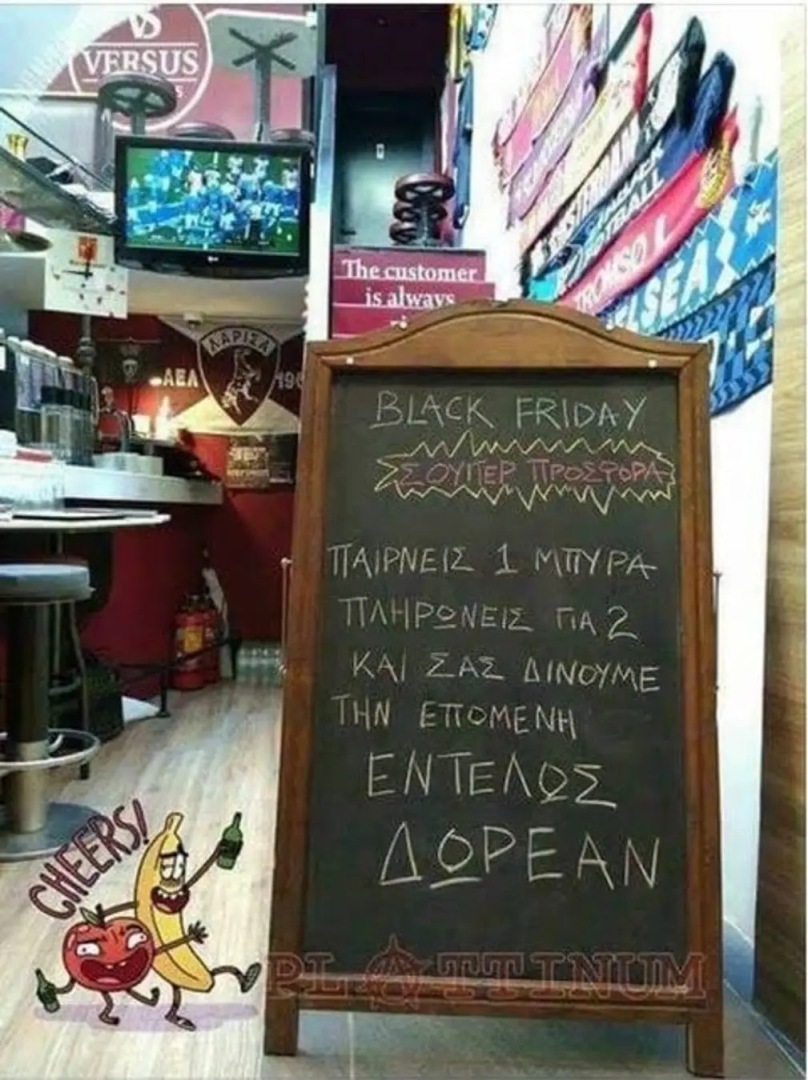 VS
VERSUS
The customer
is always
ΛΑΡΙΣΑ
ΑΕΛ 19
FOOTBALL
TROMSO
ELSEA
BLACK FRIDAY
ΣΟΥΠΕΡ ΠΡΟΣΦΟΡΑ
ΠΑΙΡΝΕΙΣ 1 ΜΠΥΡΑ
ΠΛΗΡΩΝΕΙΣ ΓΙΑ 2
ΚΑΙ ΣΑΣ ΔΙΝΟΥΜΕ
ΤΗΝ ΕΠΟΜΕΝΗ
ΕΝΤΕΛΩΣ
ΔΩΡΕΑΝ
CHEERS!
PLATTINUM